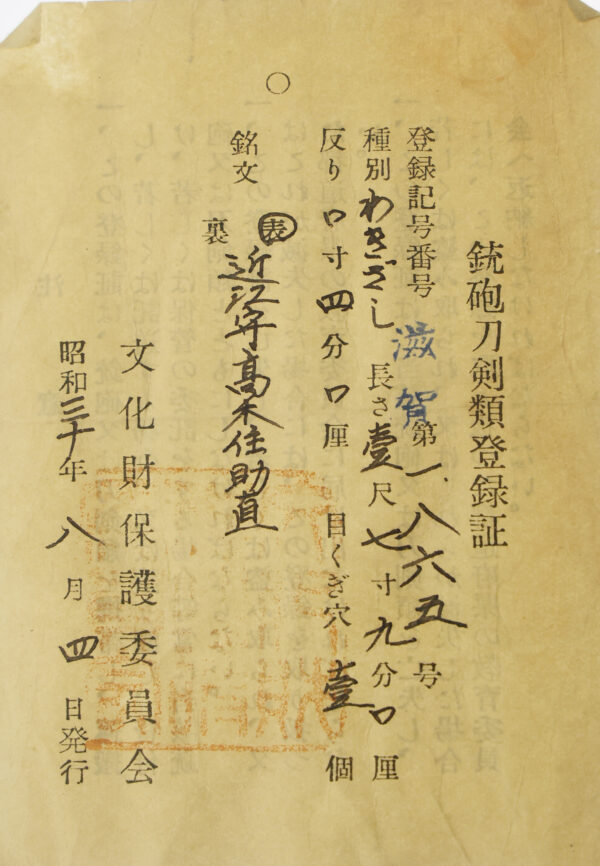 銃砲刀剣類登録証
登録記号番号 滋賀 第一八六五号
種別 わきざし 長さ 壹尺七寸九分口厘
反り 口寸四分口厘 目くぎ穴 壹個
銘文 表 近江守高木住助直
裏
文化財保護委員会
昭和三十年八月四日発行